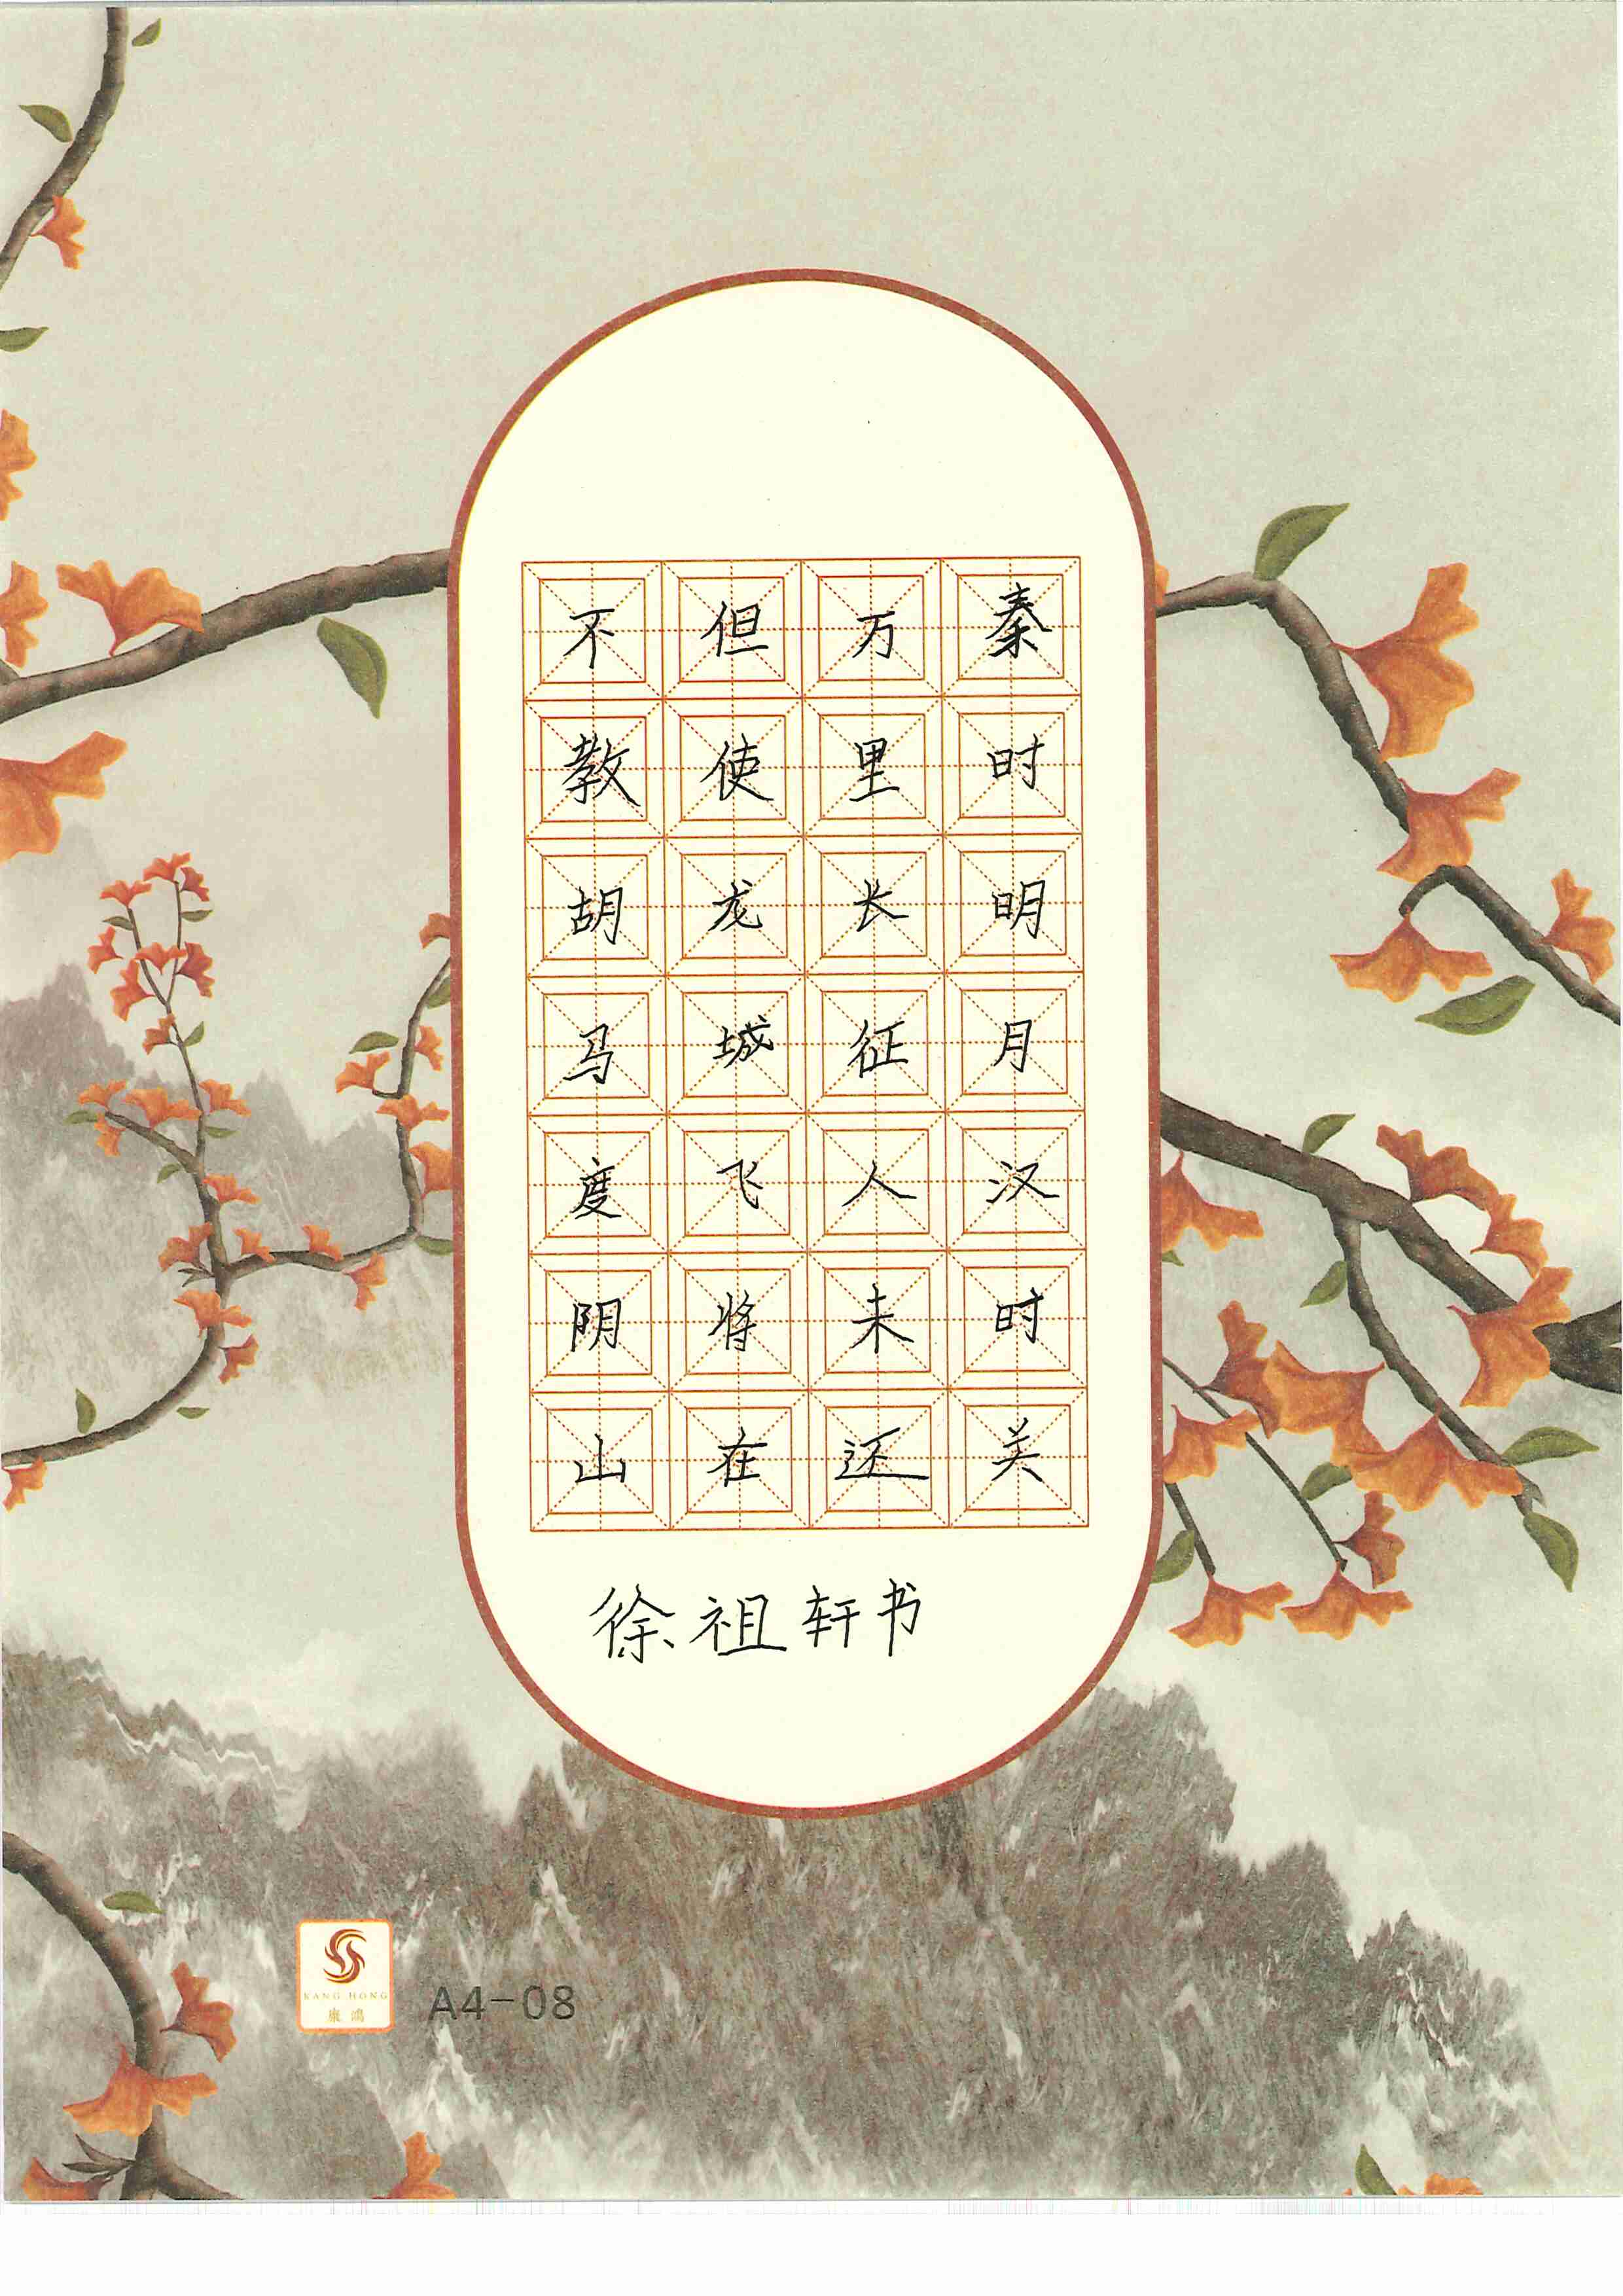 秦时明月汉时关
万里长征人未还
但使龙城飞将在
不教胡马度阴山
徐祖轩书
KANG HONG
康鸿
A4-08